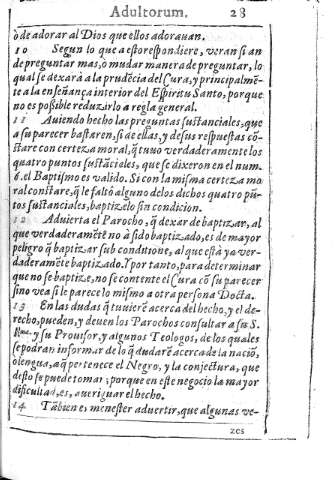 Adultorum. 28
ò de adorar al Dios que ellos adorauan.
10 Segun lo que a esto respondiere, veran si an
de preguntar mas, ò mudar manera de preguntar, lo
qual se dexarà a la prudẽcia del Cura, y principalmẽ-
te a la enseñança interior del Espiritu Santo, porque
no es possible reduzirlo a regla general.
11 Auiendo hecho las preguntas sustanciales, que
a su parecer bastaren, si de ellas, y de sus respuestas cõ-
stare con certeza moral, q̃ tuuo verdaderamente los
quatro puntos sustãciales, que se dixeron en el num.
6. el Baptismo es valido. Si con la misma certeza mo
ral constare, q̃ le faltó alguno de los dichos quatro pũ-
tos sustanciales, baptizelo sin condicion.
12 Aduierta el Parocho, q̃ dexar de baptizar, al
que verdaderamẽte no à sido baptizado, es de mayor
peligro q̃ baptizar sub conditione, al que està ya ver-
daderamẽte baptizado. Y por tanto, para determinar
que no se baptize, no se contente el Cura cõ su parecer
sino vea si le parece lo mismo a otra persona Docta.
13 En las dudas q̃ tuuierẽ acerca del hecho, y el de-
recho, pueden, y deuen los Parochos consultar a su S.
Rma. y su Prouisor, y algunos Teologos, de los quales
se podran informar de lo q̃ dudarẽ acerca de la naciõ,
o lengua, a q̃ pertenece el Negro, y la conjectura, que
desto se puede tomar; porque en este negocio la mayor
dificultad, es, aueriguar el hecho.
14 Tãbien es menester aduertir, que algunas ve-
zes